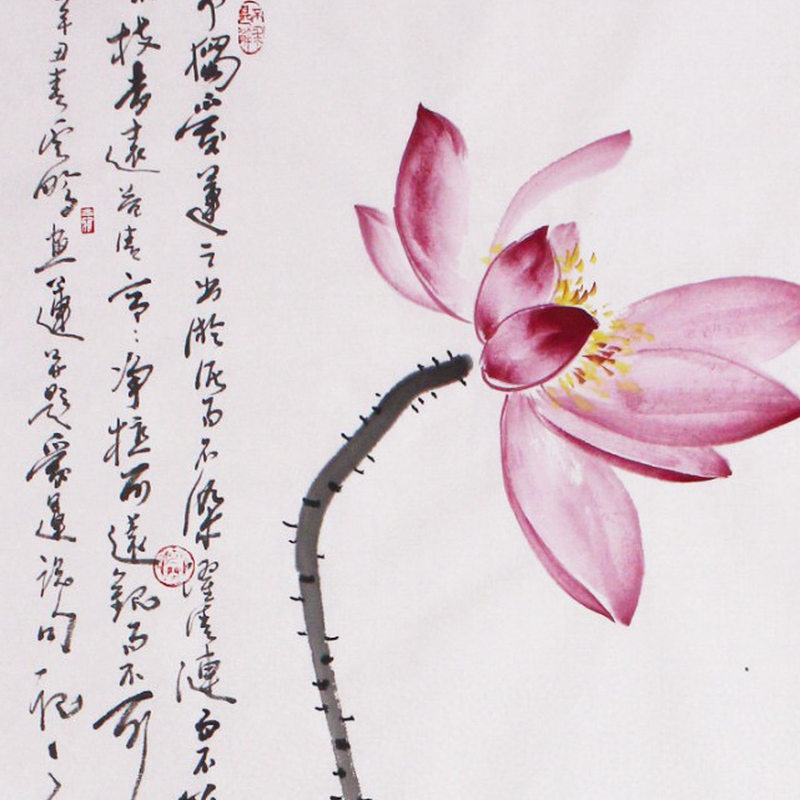 獨愛蓮之出淤泥而不染濯清漣而不
枝香遠益清亭亭净植可遠觀而不可
辛丑春雲鵬畫蓮題愛蓮說句